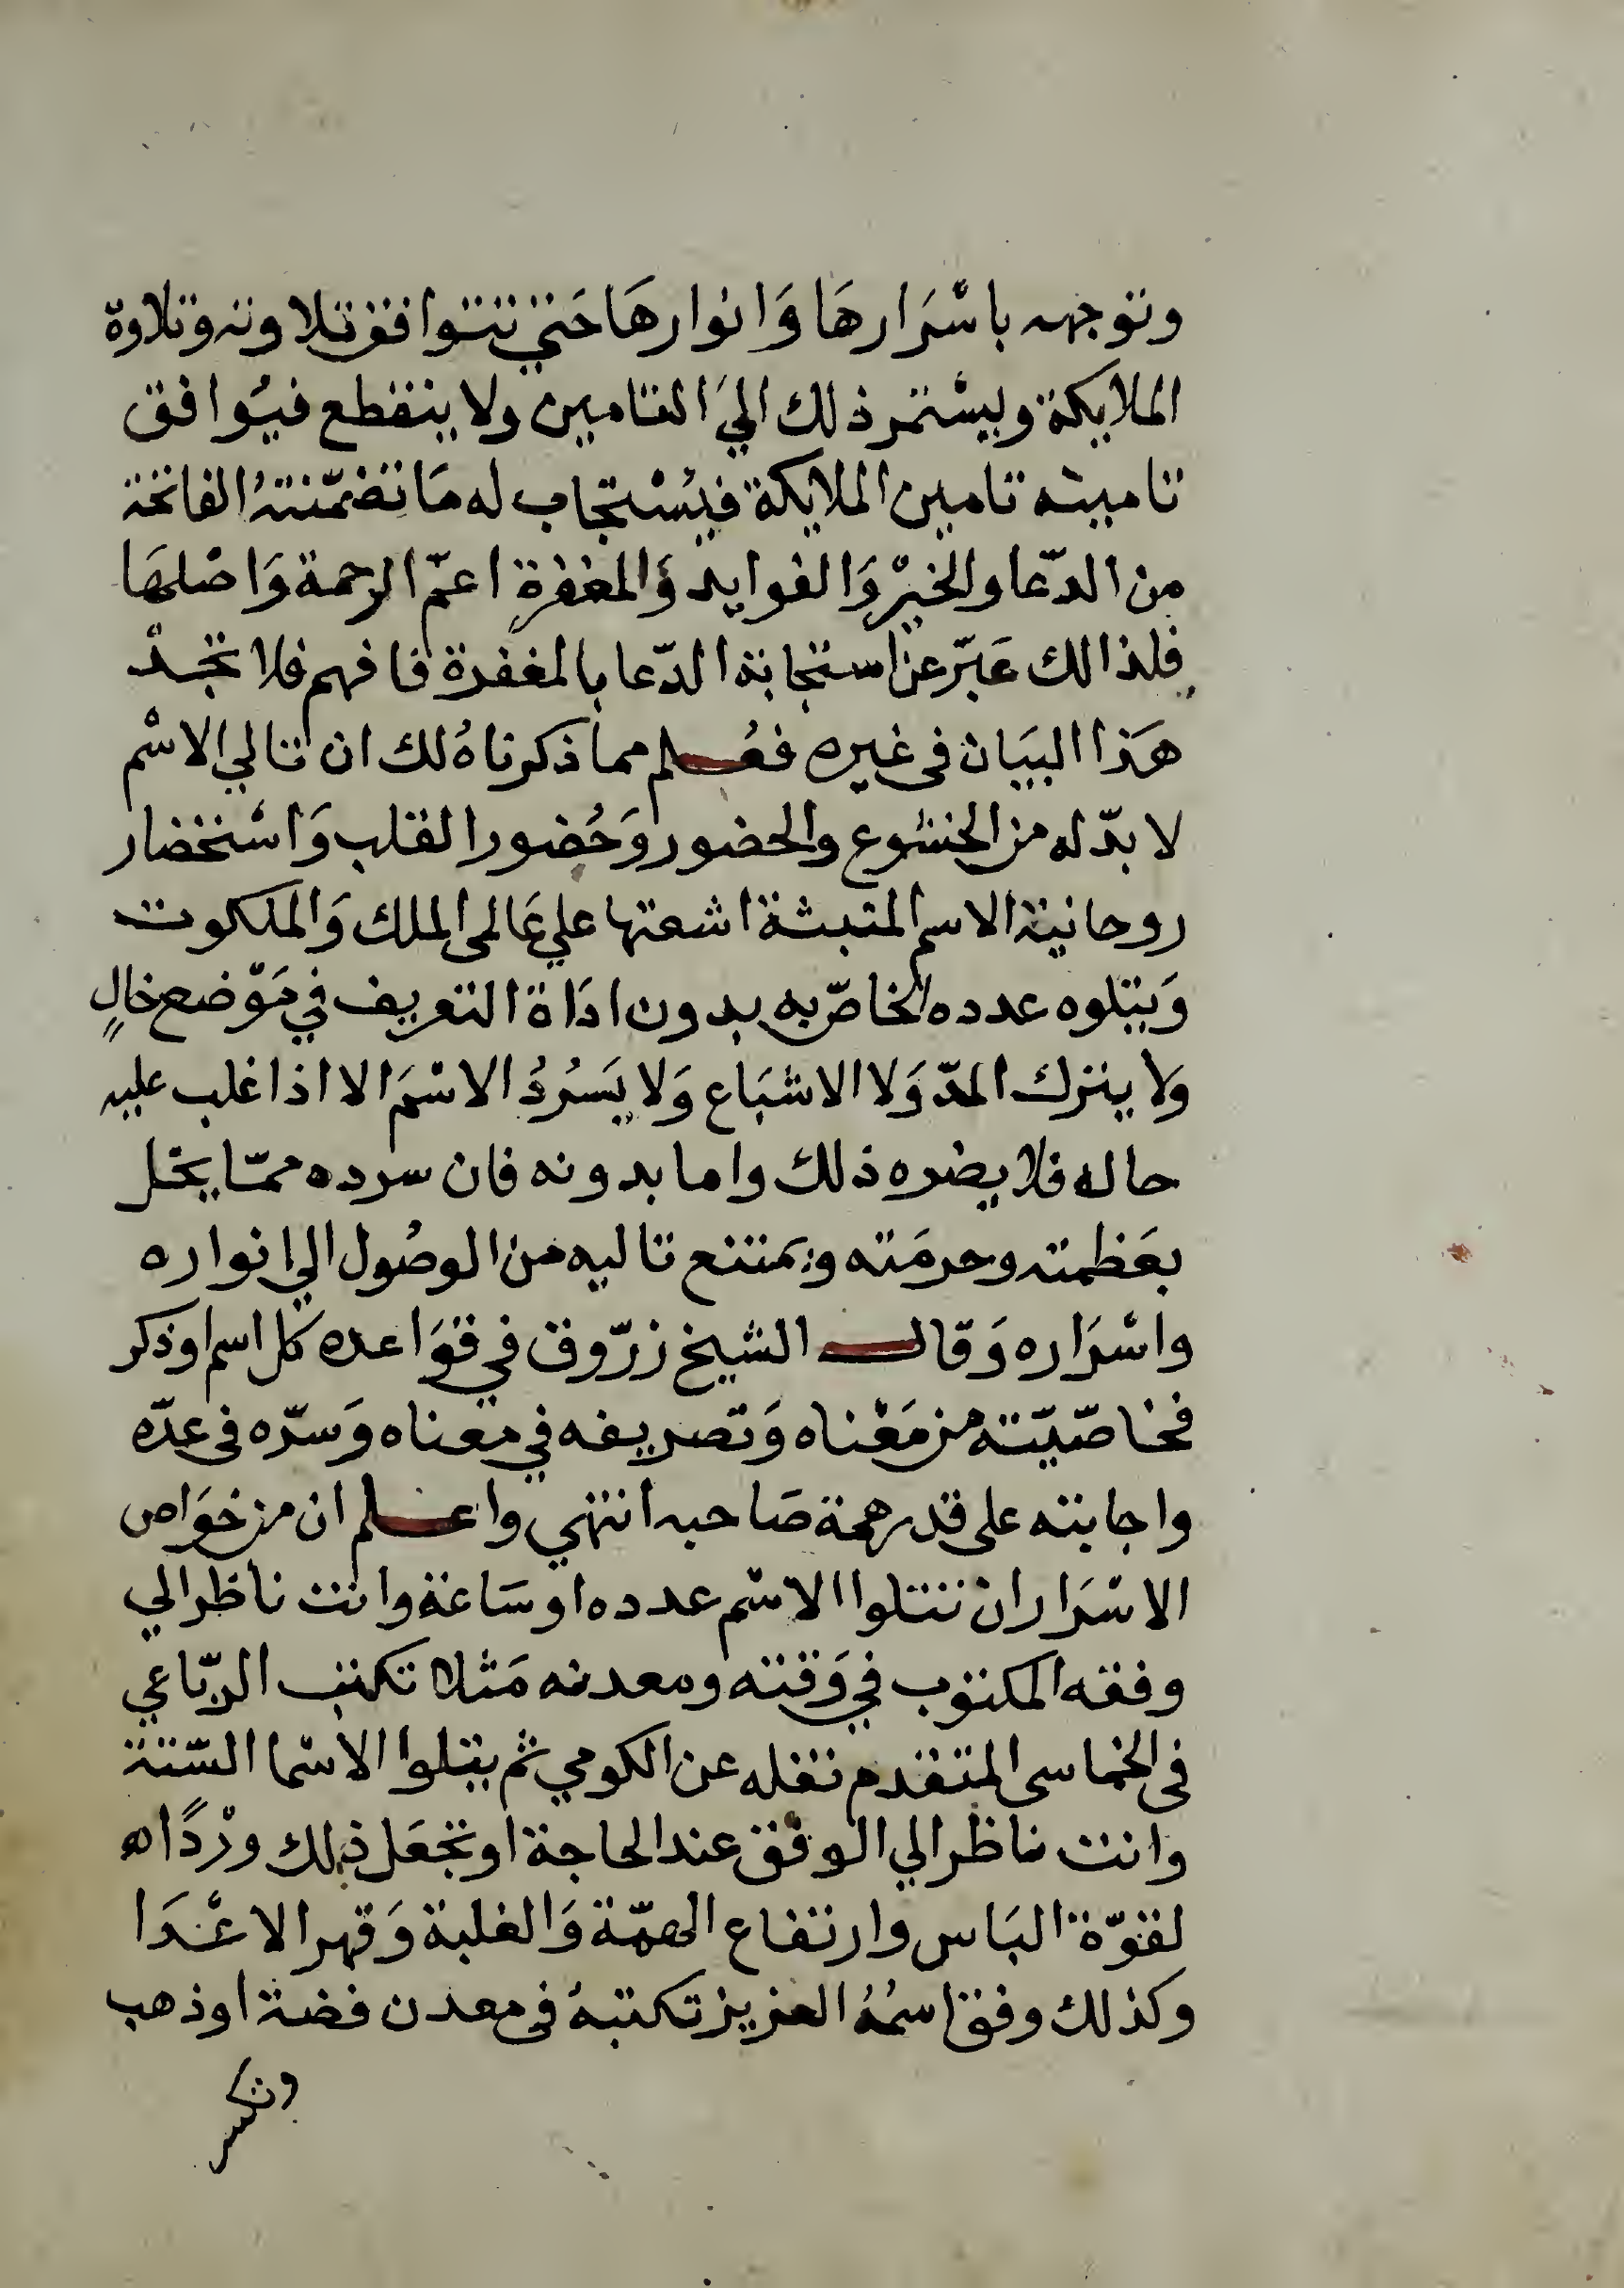 وتوجه باسْرَارهَا وَانوارهَا حَتي تتوافق تلاوته وتلاوة
الملايكة ويسْتمر ذلك اليَ التامين ولا ينقطع فيُوافق
تامينه تامين الملايكة فيُسْتجاب له مَا تضمّنتهُ الفاتحة
من الدّعا والخيْر وَالفوايد وَالمغفرةِ اعمّ الرحمة وَاصْلهَا
فلذالك عَبّر عن استجابة الدّعا بالمغفرة فافهم فلا تجدْ
هَذا البيَان فى غيره فعُلم مما ذكرناهُ لك ان تالي الاسْم
لا بدّ له من الخشوع والحضور وَحُضور القلب وَاسْتحضار
روحانية الاسم المتبثة اشعتها علي عَالمى الملك وَالملكوت
وَيتلوه عدده الخاصّ به بدون ادَاة التعريف في مَوْضع خالٍ
وَلا يترك المدّ وَلا الاشبَاع وَلا يَسَرُدُ الاسْمَ الا اذا غلب عليه
حاله فلا يضره ذلك واما بدونه فان سرده ممّا يخل
بعَظمته وحرمَته ويمتنع تاليه من الوصُول الي انواره
واسْرَاره وَقال الشيخ زرّوق في قوَاعده كل اسم اوذكر
فخاصّيّته من مَعْناه وَتصريفه في معناه وَسرّه فى عدّه
واجابته على قدر همة صَاحبه انتهي واعلم ان من خوَاص
الاسْرَار ان تتلوا الاسْم عدده اوسَاعة وانت ناظر الي
وفقه المكتوب في وَقته ومعدنه مَثلا تكتب الربّاعي
فى الخماسى المتقدم نقله عن الكومي ثم يتلوا الاسْما السّتة
وانت ناظر الي الوفق عند الحاجة اوتجعَل ذلك ورْدًا ه
لقوّة البَاس وارتفاع الهمّة وَالغلبة وَقهر الاعْدَا
وكذلك وفق اسمُهُ العزيز تكتبهُ فى معدن فضة اوذهب